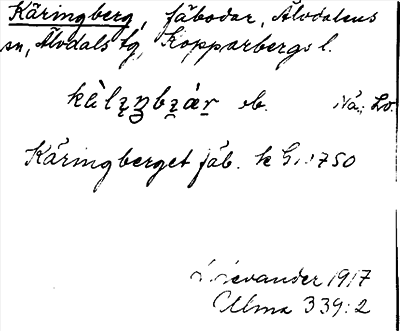 Käringberg, fäbodar, Älvdalens
sn, Älvdals tg, Kopparbergs l.
Käringberget fäb. k G. 1750
Levander 1917
Ulma 339:2